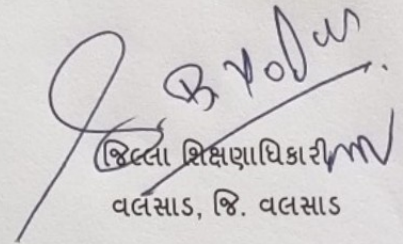 જિલ્લા શિક્ષણાધિકારી
વલસાડ, જિ. વલસાડ